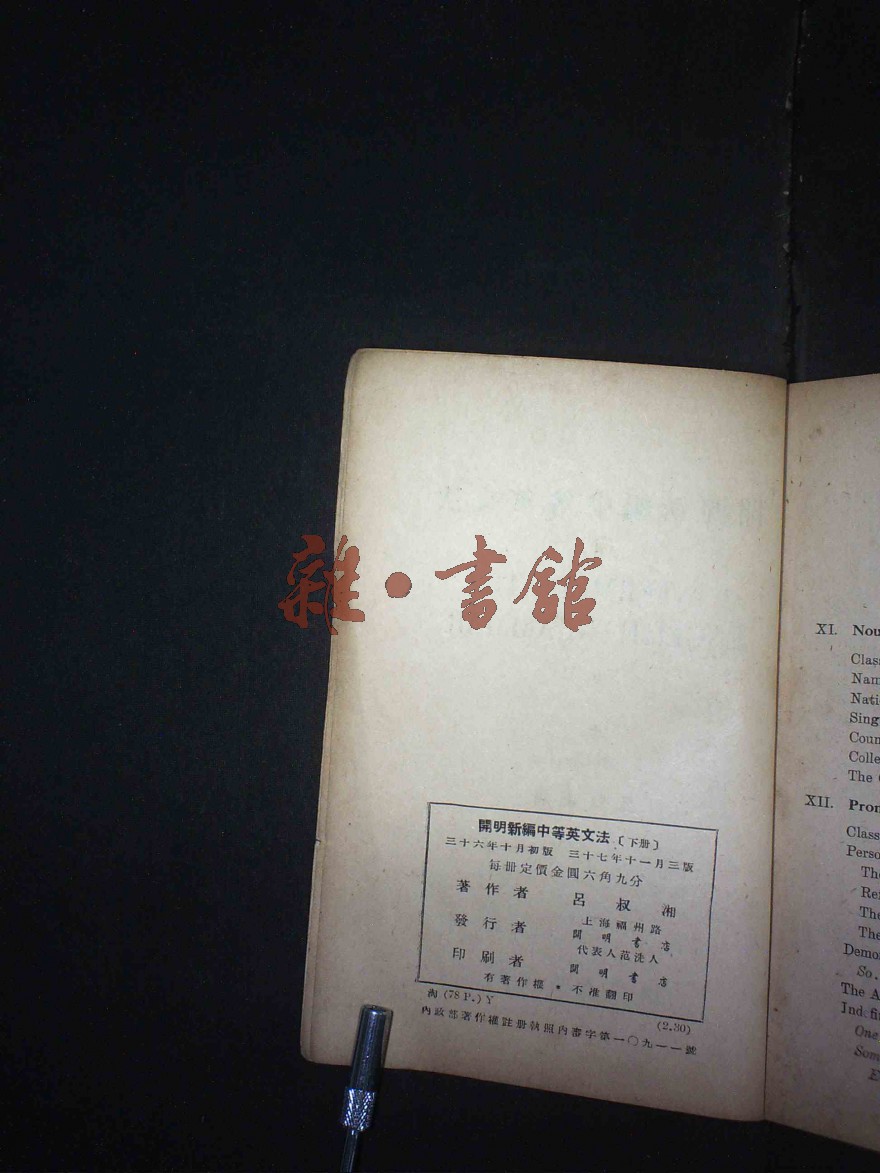 雜·書館
開明新編中等英文法〔下册〕
三十六年十月初版 三十七年十一月三版
每冊定價金圓六角九分
著作者 呂叔湘
發行者 上海福州路
開明書店
代表人范洗人
印刷者 開明書店
有著作權·不准翻印
(78 P.) Y (2.30)
內政部著作權註册執照內審字第一〇九一一號
XI. Nou
Clas
Nam
Nati
Sing
Coun
Colle
The
XII. Pron
Class
Perso
The
Ref
The
The
Demo
So.
The A
Indefi
One
Som
E